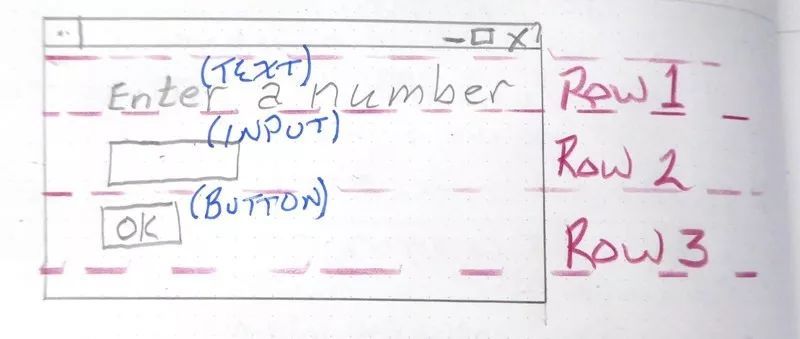 (TEXT)
Enter a number Row 1
(INPUT)
Row 2
(BUTTON)
OK
Row 3